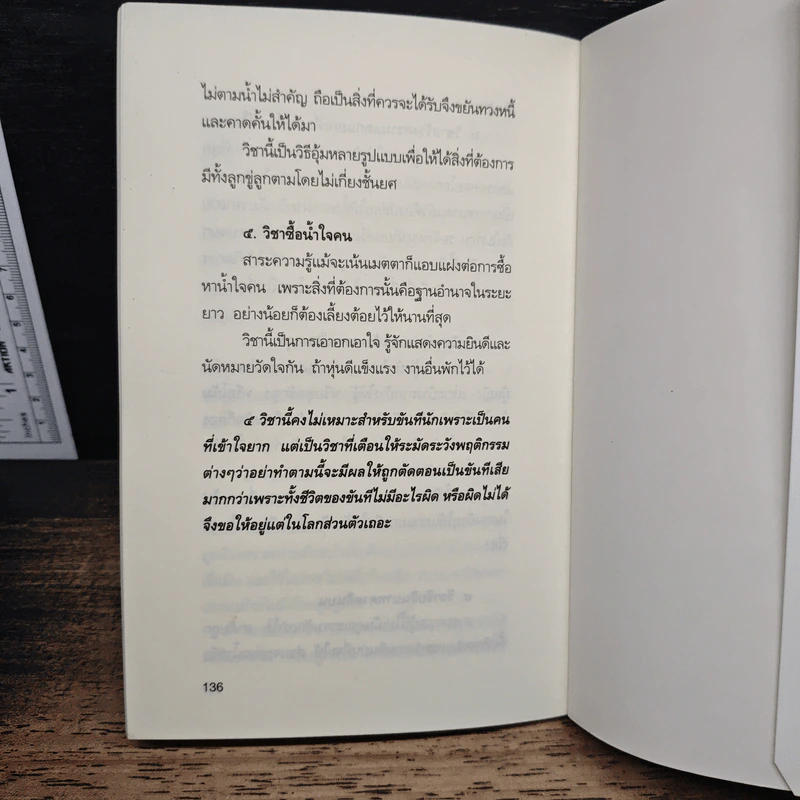 ไม่ตามน้ำไม่สำคัญ ถือเป็นสิ่งที่ควรจะได้รับจึงขยันทวงหนี้
และคาดคั้นให้ได้มา
วิชานี้เป็นวิธีอุ้มหลายรูปแบบเพื่อให้ได้สิ่งที่ต้องการ
มีทั้งลูกขู่ลูกตามโดยไม่เกี่ยงชั้นยศ
๕. วิชาซื้อน้ำใจคน
สาระความรู้แม้จะเน้นเมตตาก็แอบแฝงต่อการซื้อ
หาน้ำใจคน เพราะสิ่งที่ต้องการนั้นคือฐานอำนาจในระยะ
ยาว อย่างน้อยก็ต้องเลี้ยงต้อยไว้ให้นานที่สุด
วิชานี้เป็นการเอาอกเอาใจ รู้จักแสดงความยินดีและ
นัดหมายวัดใจกัน ถ้าหุ่นดีแข็งแรง งานอื่นพักไว้ได้
๕ วิชานี้คงไม่เหมาะสำหรับขันทีนักเพราะเป็นคน
ที่เข้าใจยาก แต่เป็นวิชาที่เตือนให้ระมัดระวังพฤติกรรม
ต่างๆว่าอย่าทำตามนี้จะมีผลให้ถูกตัดตอนเป็นขันทีเสีย
มากกว่าเพราะทั้งชีวิตของขันทีไม่มีอะไรผิด หรือผิดไม่ได้
จึงขอให้อยู่แต่ในโลกส่วนตัวเถอะ
136